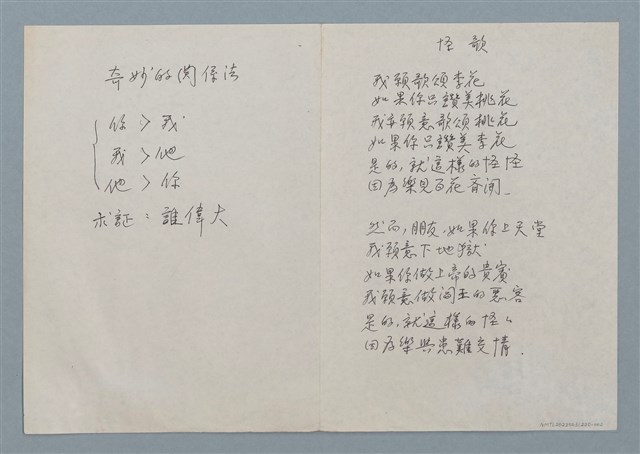 怪歌
我願歌頌李花
如果你只讚美桃花
我亦願意歌頌桃花
如果你只讚美李花
是的,就這樣的怪怪
因為樂見百花齊開
然而,朋友,如果你上天堂
我願意下地獄
如果你做上帝的貴賓
我願意做閻王的惡客
是的,就這樣的怪々
因為樂與患難交情.
奇妙的関係法
你 > 我
我 > 他
他 > 你
求証:誰偉大